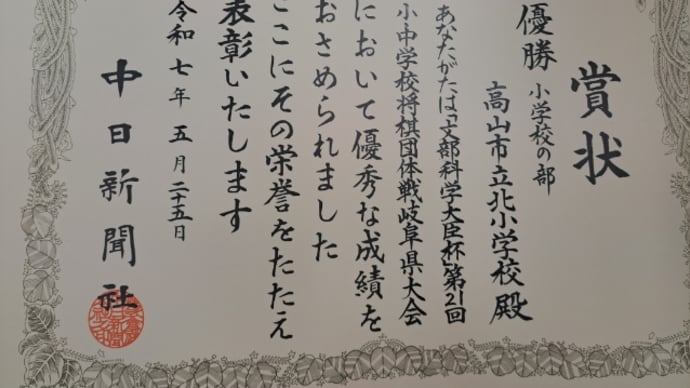 賞状
優勝 小学校の部
高山市立北小学校殿
あなたがたは「文部科学大臣杯」第21回
小中学校将棋団体戦岐阜県大会
において優秀な成績を
おさめられました
ここにその栄誉をたたえ
表彰いたします
令和七年五月二十五日
中日新聞社